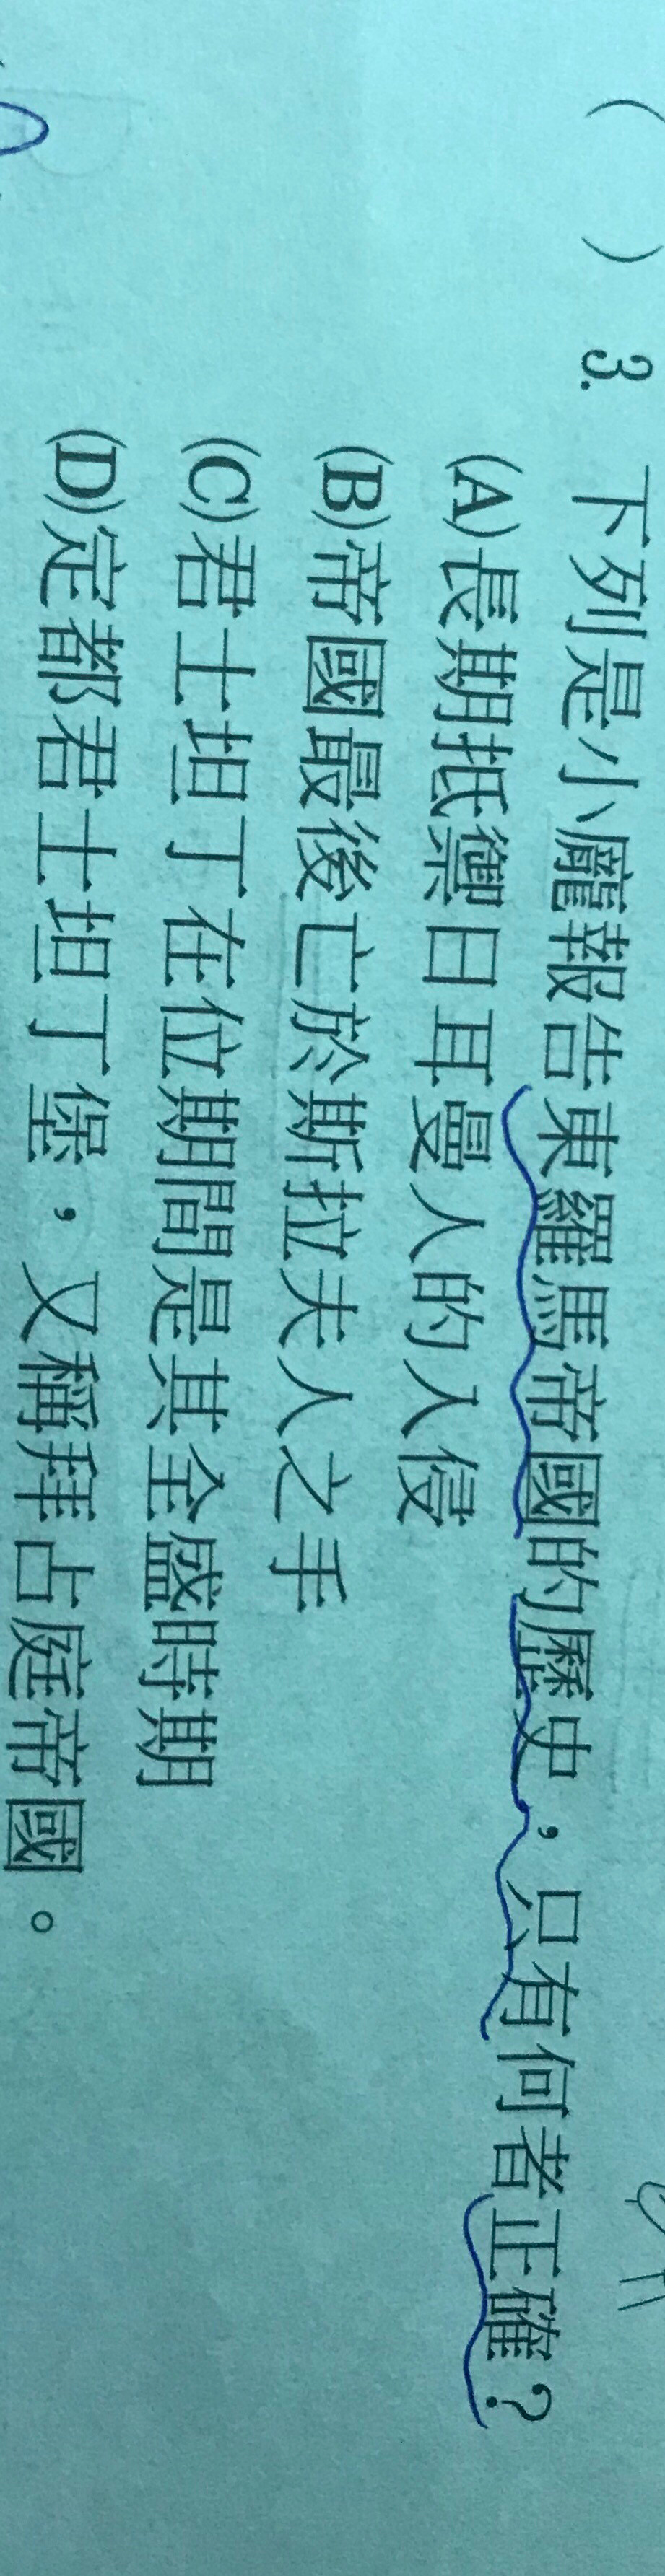 ( ) 3. 下列是小龐報告東羅馬帝國的歷史，只有何者正確？
(A)長期抵禦日耳曼人的入侵
(B)帝國最後亡於斯拉夫人之手
(C)君士坦丁在位期間是其全盛時期
(D)定都君士坦丁堡，又稱拜占庭帝國。